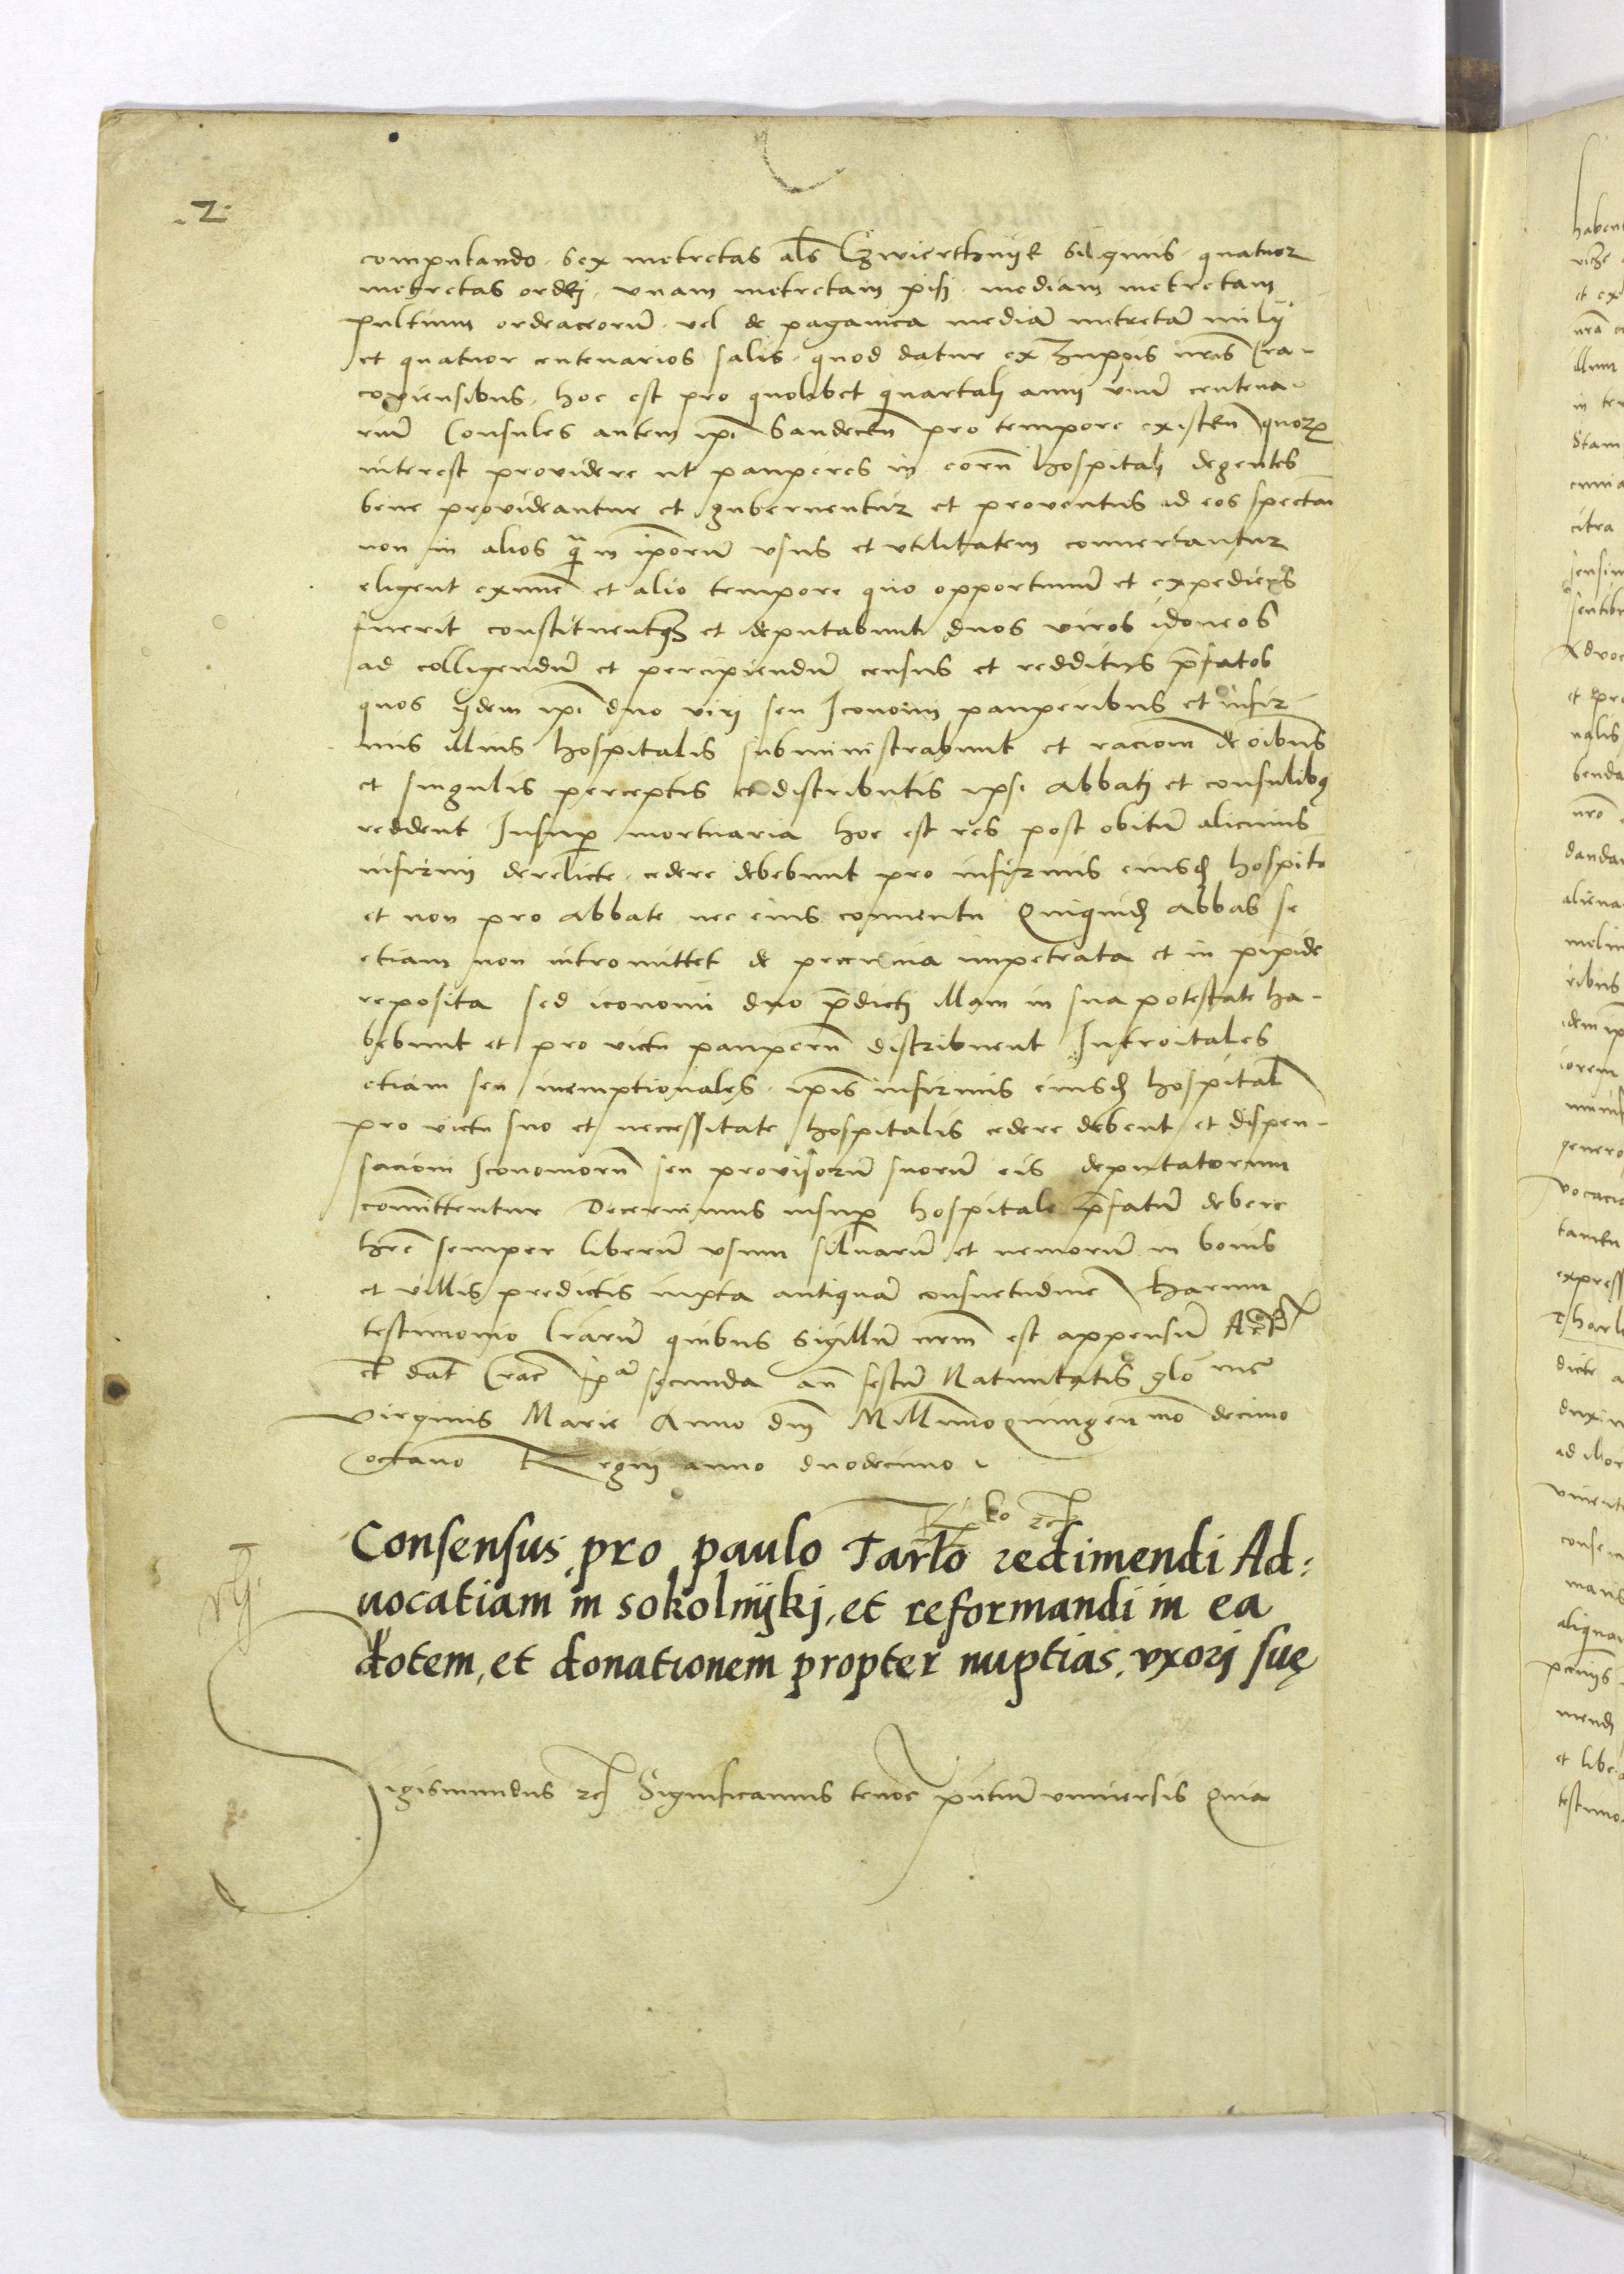 .2.
computando. sex metretas als Czwierthnijk siliginis. quatuor
metretas ordej. vnam metretam pisi. mediam metretam
pultium ordeaceorū. vel de paganica mediā metretā milij
et quatuor centenarios salis. quod datur ex Zuppis nris Cra-
coviensibus. hoc est pro quolibet quartalj anni vnū centena-
riū Consules autem ipi Sandecen pro tempore existen quorz
interest providere ut pauperes in eorū hospitalj degentes
bene provideantur et gubernentur et proventus ad eos spectan
non in alios q̄ in ipsorū vsus et vtilitatem convertantur
eligent et alio tempore quo opportunū et expediens
fuerit constituentqz et deputabunt duos viros idoneos
ad colligendū et percipiendū census et redditus p̄fatos
quos ijdem ipi duo virj seu Iconomi pauperibus et infir
mis illius hospitalis subministrabunt et racionm de oibus
et singulis perceptis et distributis ipsi Abbatj et consulibq
reddent Insup mortuaria hoc est res post obitū alicuius
infirmi derelicte. cedere debebunt pro infirmis eiusd hospitā
et non pro Abbate nec eius conventu Quiquid Abbas se
etiam non intromittet de pecunia impetrata et in pixide
reposita sed iconomi duo p̄dictj illam in sua potestate ha-
bebunt et pro victu pauperū distribuent Introitales
etiam seu inemptionales. ipis infirmis eiusd hospital
pro victu suo et neccessitate hospitalis cedere debent et dispen-
sacioni Iconomorū seu provisorū suorū eis deputatorum
committentur Decernimus insup hospitale p̄fatū debere
hre semper liberū vsum siluarū et nemorū in bonis
et villis predictis iuxta antiquā consuetudinē Harum
testimonio lrarū quibus sigillū nrm est appensū
dat Crac fer secunda an festū Natiuitatis glo me
virginis Marie Anno dni Millimo quingenmo decimo
octavo Regni anno duodecimo
Consensus pro paulo Tarlo redimendi Ad:
uocatiam in sokolnijkj, et reformandi in ea
dotem, et donationem propter nuptias. vxorj suę
Sigismundus Significamus tenoe pntiū vniuersis Quia